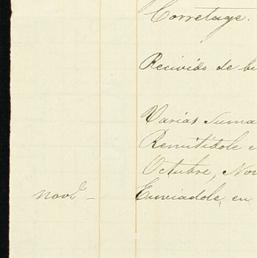 Corretage.
Recivido de bi
Varias Suma
Remitidole e
Octubre, Nov
Novbe — Enviadole, en